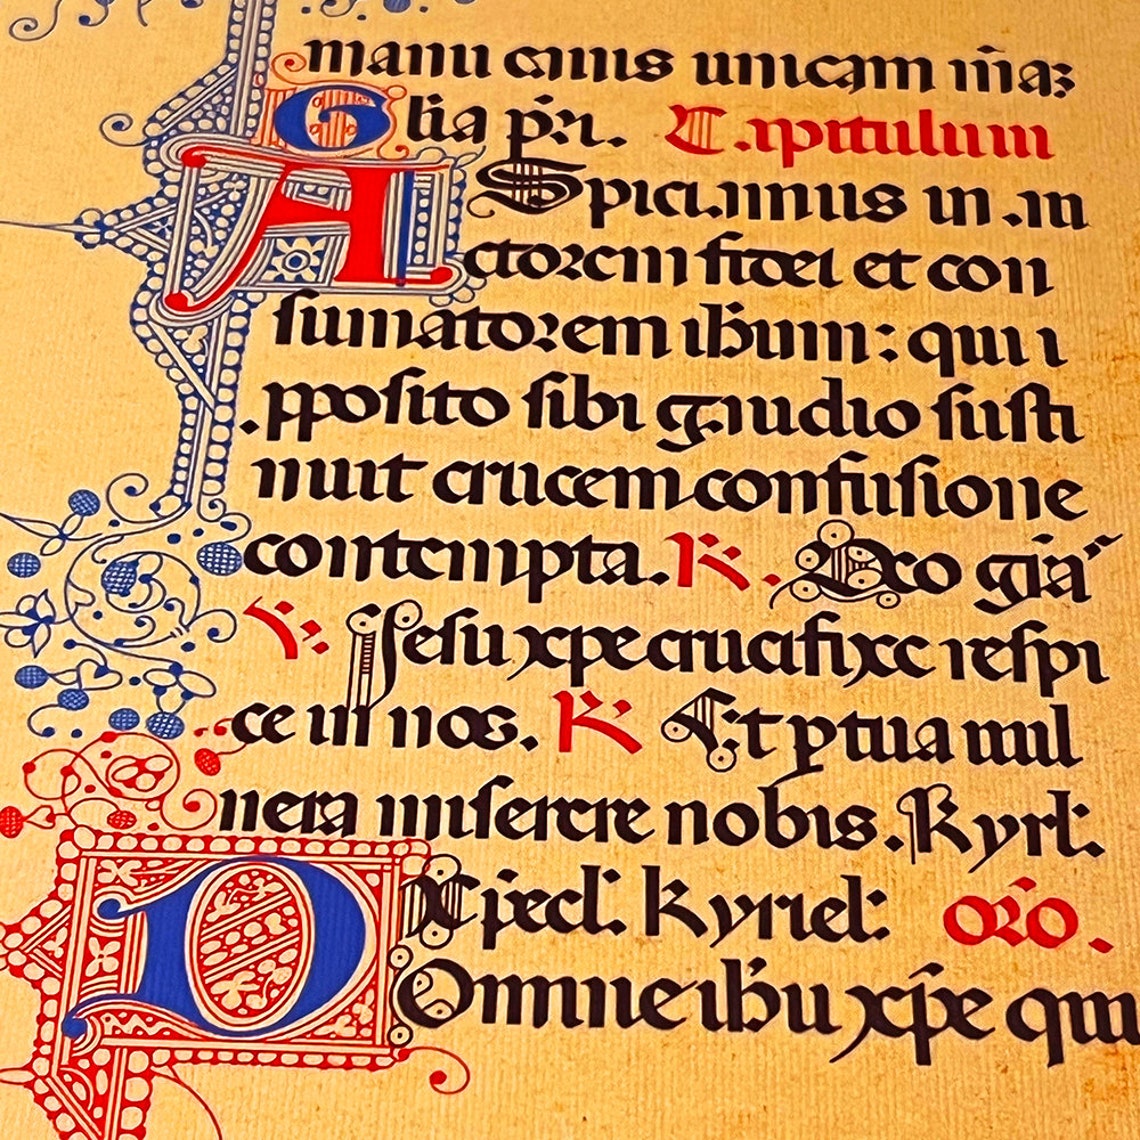 manu cuius unicam ma;
Glia pri. Capitulum
ASpiciamus in au
ctorem fidei et con
sumatorem ihum: qui p
proposito sibi gaudio susti
nuit crucem confusione
contempta. R. Deo gra
V. Jesu xpe crucifixe respi
ce in nos. R. Et p tua mul
nera miserere nobis. Kyrl:
Xpeel. Kyriel: oro.
DOmine ihu xpe qui